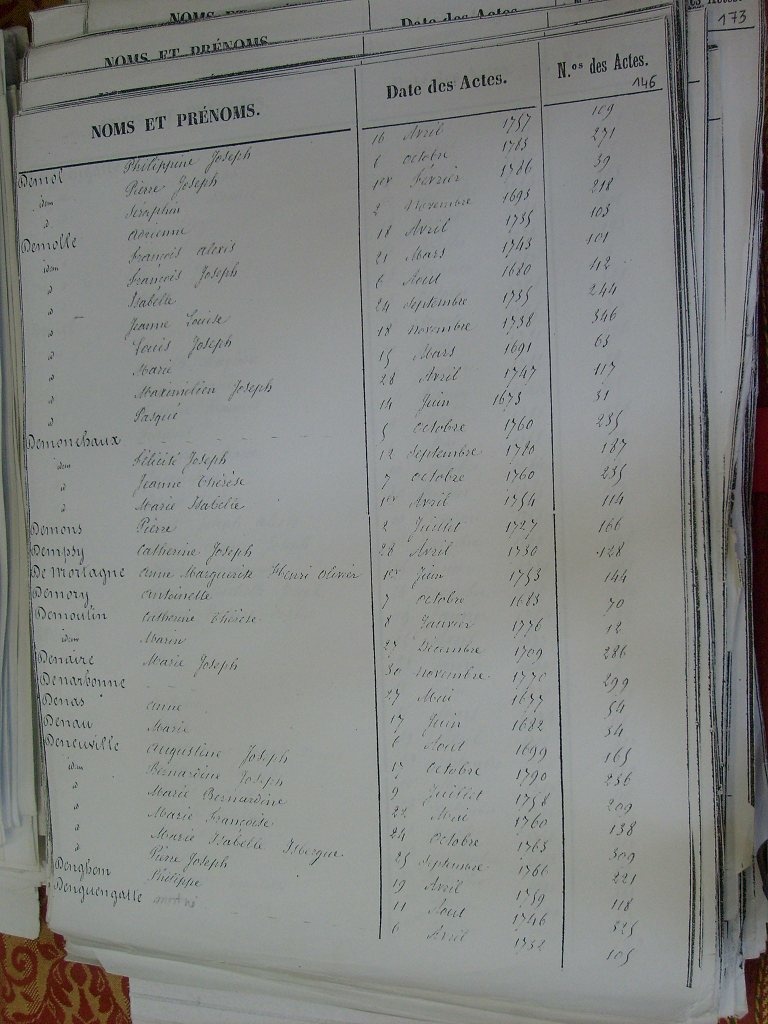 173
NOMS ET PRÉNOMS.
NOMS ET PRÉNOMS. Date des Actes. N.os des Actes.
146
Demol Philippine Joseph 16 Avril 1757 109
idem Pierre Joseph 6 Octobre 1783 271
d Séraphin 1er Février 1786 39
Demolle Adrienne 2 Novembre 1693 218
idem François Alexis 18 Avril 1735 103
d François Joseph 21 Mars 1743 101
d Isabelle 6 Aout 1680 42
d Jeanne Louise 24 Septembre 1735 244
d Louis Joseph 18 Novembre 1738 346
d Marie 15 Mars 1691 63
d Maximilien Joseph 28 Avril 1747 117
d Pasque 14 Juin 1673 31
Demonchaux 5 Octobre 1760 235
idem Félicité Joseph 12 Septembre 1780 187
d Jeanne Thérèse 7 Octobre 1760 235
d Marie Isabelle 1er Avril 1754 114
Demons Pierre 2 Juillet 1727 166
Dempsy Catherine Joseph 28 Avril 1730 128
De Mortagne Anne Marguerite Henri Olivier 1er Juin 1753 144
Demory Antoinette 7 Octobre 1683 70
Demoulin Catherine Thérèse 8 Janvier 1776 12
idem Marin 27 Décembre 1709 286
Denaire Marie Joseph 30 Novembre 1770 299
Denarbonne 27 Mai 1677 54
Denas Anne 17 Juin 1682 34
Denau Marie 6 Aout 1699 165
Deneuville Augustine Joseph 17 Octobre 1790 236
idem Bernardine Joseph 9 Juillet 1758 209
d Marie Bernardine 22 Mai 1760 138
d Marie Françoise 24 Octobre 1763 309
d Marie Isabelle Isbergue 25 Septembre 1766 221
d Pierre Joseph 19 Avril 1759 118
Denghem Philippe 11 Aout 1746 325
Denquengatte André 6 Avril 1732 105